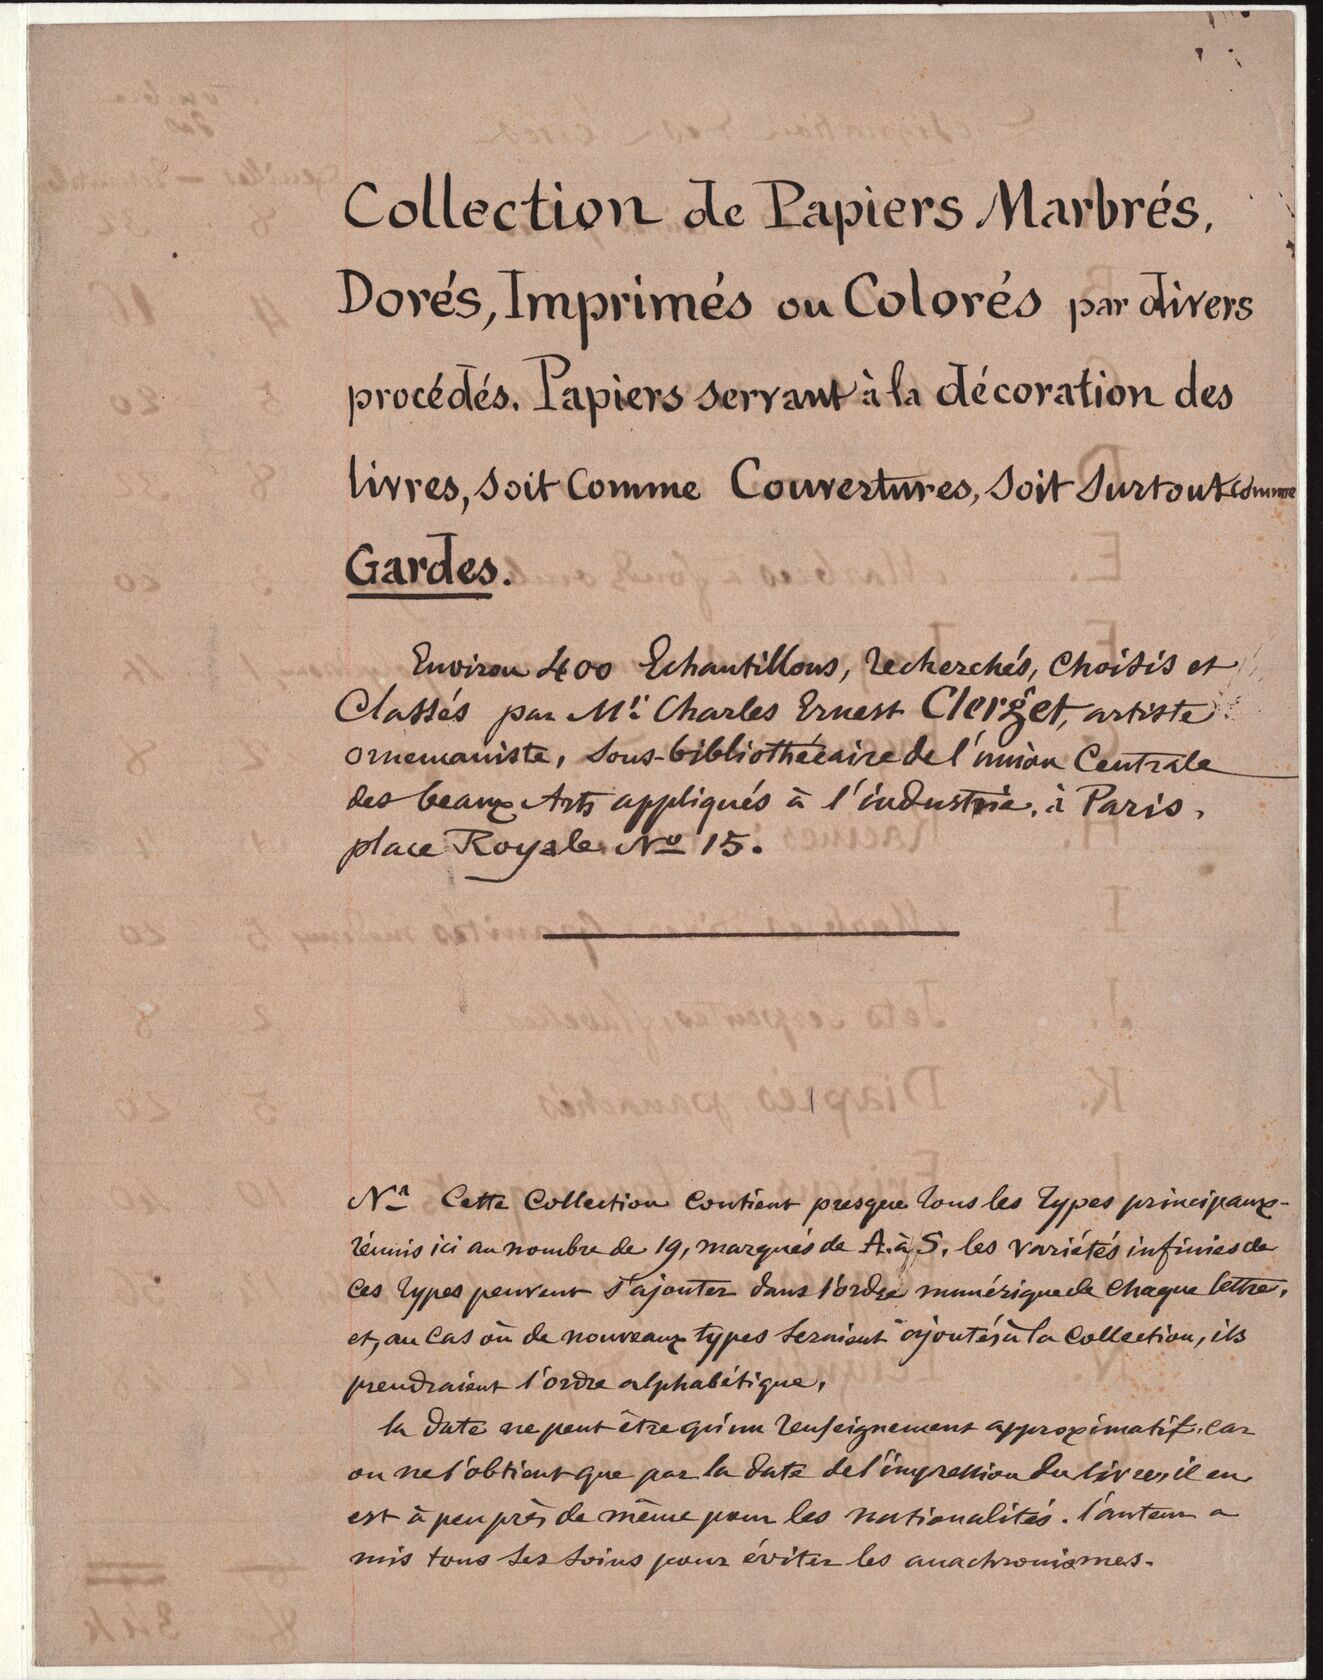 Collection de Papiers Marbrés,
Dorés, Imprimés ou Colorés par divers
procédés. Papiers servant à la décoration des
livres, soit comme Couvertures, soit surtout comme
Gardes.
Environ 400 Echantillons, recherchés, choisis et
Classés par Mr Charles Ernest Clerget, artiste
ornemaniste, sous-bibliothécaire de l'union Centrale
des beaux Arts appliqués à l'industrie, à Paris,
place Royale No 15.
Na Cette Collection contient presque tous les types principaux
réunis ici au nombre de 19, marqués de A. à S. les variétés infinies de
ces types peuvent s'ajouter dans l'ordre numérique de chaque lettre,
et, au cas où de nouveaux types seraient ajoutés à la collection, ils
prendraient l'ordre alphabétique.
la date ne peut être qu'un renseignement approximatif, car
on ne l'obtient que par la date de l'impression du livre, il en
est à peu près de même pour les nationalités. l'auteur a
mis tous ses soins pour éviter les anachronismes.